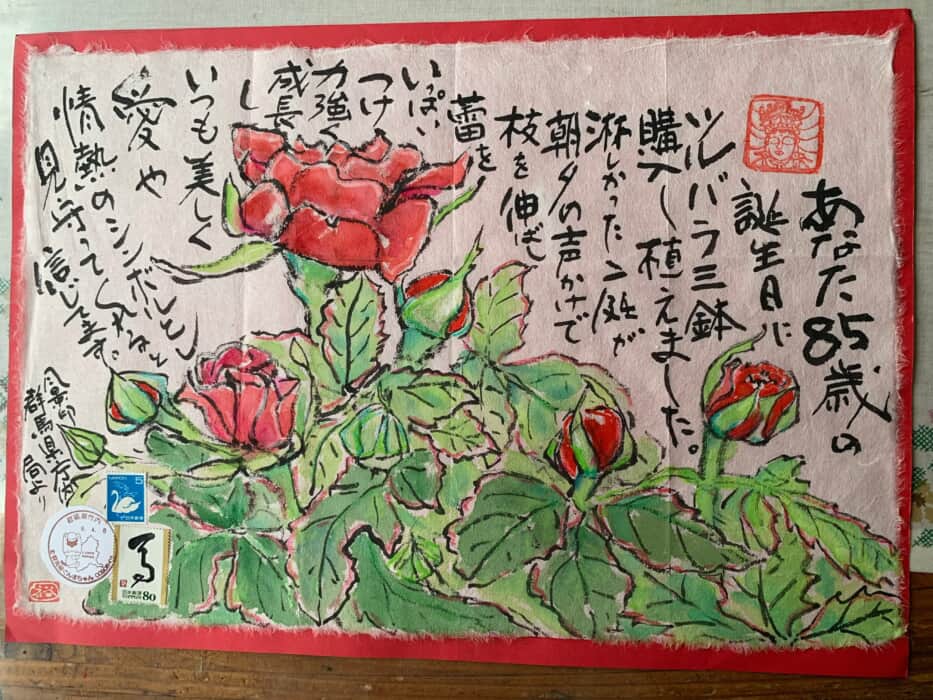 あなた85歳の
誕生日に
ツルバラ三鉢
購入し植えました。
淋しかった庭が
朝夕の声かけで
枝を伸ばし
蕾を
いっぱい
つけ
力強く
成長
し
いつも美しく
愛や
情熱のシンボルとし
見守ってくれると
信じてます。
風景印
群馬県庁内
局より
NIPPON
5
日本郵便
群馬県庁内
日本郵便
NIPPON
80